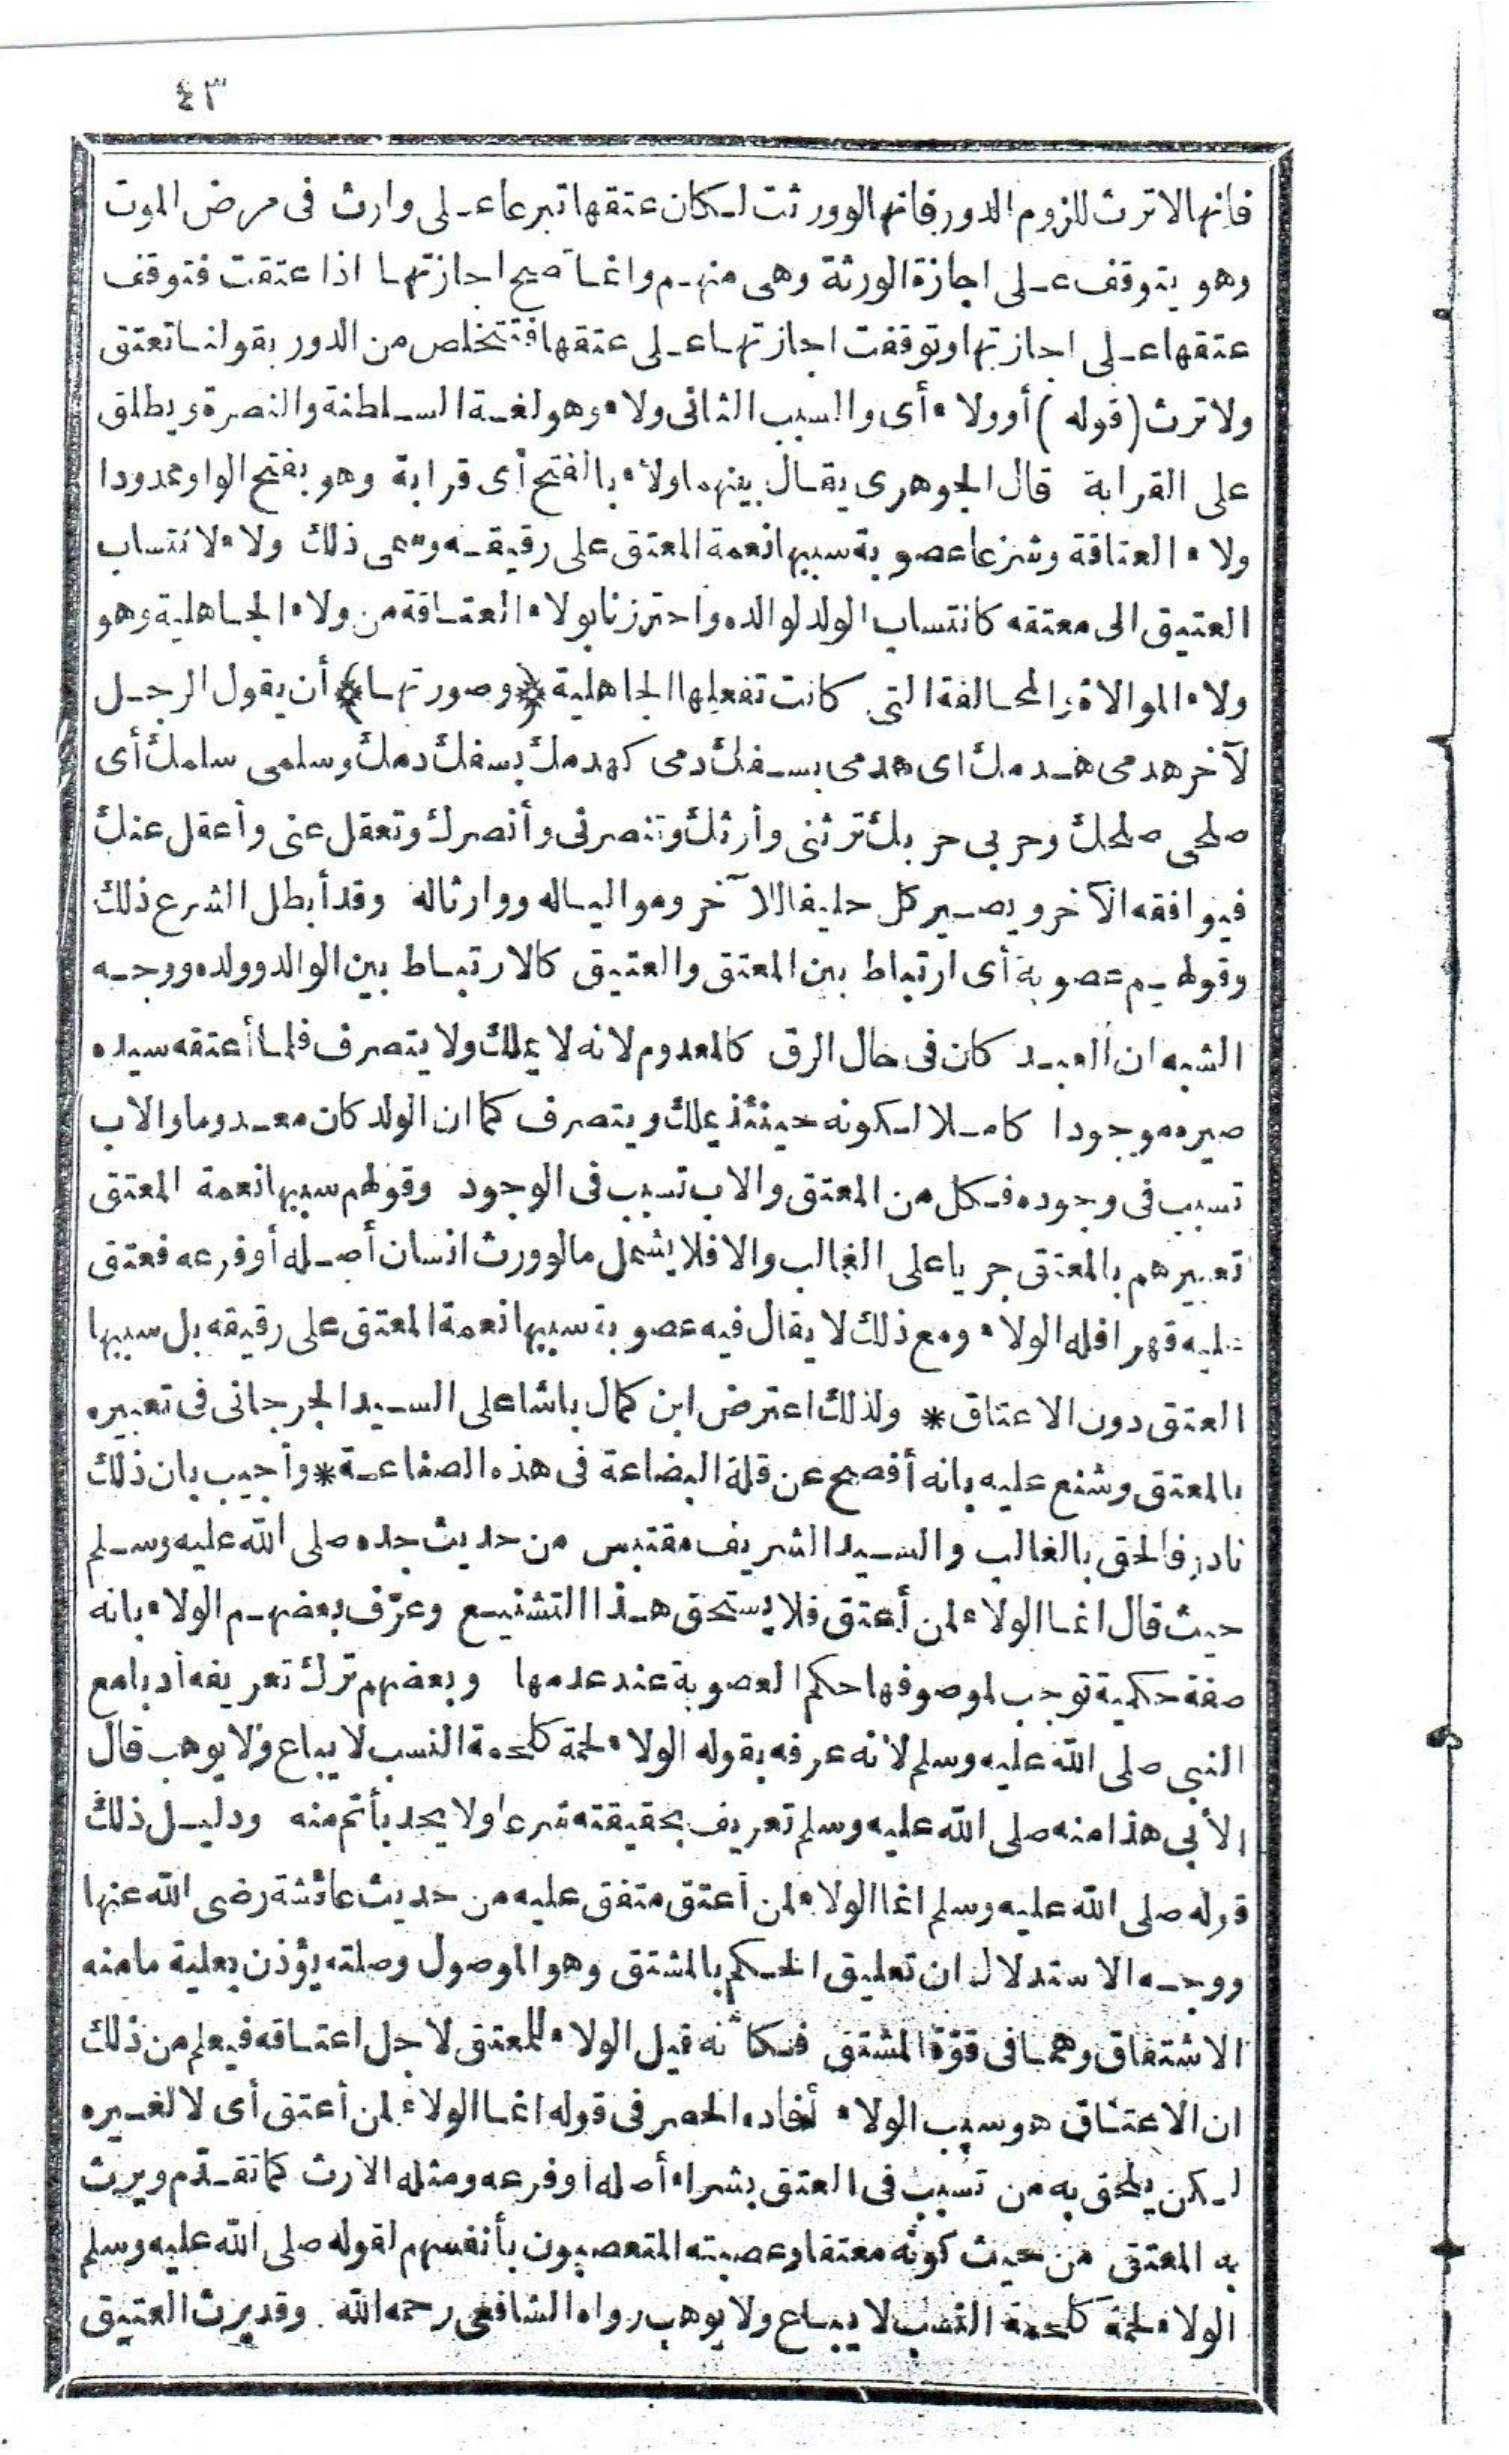 ٤٣
فانها لا ترث للزوم الدور فانها لو ورثت لكان عتقها تبرعا على وارث فى مرض الموت
وهو يتوقف على اجازة الورثة وهى منهم وانما تصح اجازتها اذا عتقت فتوقف
عتقها على اجازتها وتوقفت اجازتها على عتقها فتتخلص من الدور بقولنا تعتق
ولا ترث (قوله) أو ولاء أى والسبب الثانى ولاء وهو لغة السلطنة والنصرة ويطلق
على القرابة قال الجوهرى يقال بينهما ولاء بالفتح أى قرابة وهو بفتح الواو ممدودا
ولاء العتاقة وشرعا عصوبة سببها نعمة المعتق على رقيقه وسمى ذلك ولاء لانتساب
العتيق الى معتقه كانتساب الولد لوالده واحترزنا بولاء العتاقة من ولاء الجاهلية وهو
ولاء الموالاة والمحالفة التى كانت تفعلها الجاهلية ﴿وصورتها﴾ أن يقول الرجل
لآخر هدمى هدمك اى هدمى بسفك دمى كهدمك بسفك دمك وسلمى سلمك أى
صلحى صلحك وحربى حربك ترثنى وأرثك وتنصرنى وأنصرك وتعقل عنى وأعقل عنك
فيوافقه الآخر ويصير كل حليفا للآخر ومواليا له ووارثا له وقد أبطل الشرع ذلك
وقولهم عصوبة أى ارتباط بين المعتق والعتيق كالارتباط بين الوالد وولده ووجه
الشبه ان العبد كان فى حال الرق كالمعدوم لانه لا يملك ولا يتصرف فلما أعتقه سيده
صيره موجودا كاملا لكونه حينئذ يملك ويتصرف كما ان الولد كان معدوما والاب
تسبب فى وجوده فكل من المعتق والاب تسبب فى الوجود وقولهم سببها نعمة المعتق
تعبيرهم بالمعتق جريا على الغالب والا فلا يشمل ما لو ورث انسان أصله أو فرعه فعتق
عليه قهرا فله الولاء ومع ذلك لا يقال فيه عصوبة سببها نعمة المعتق على رقيقه بل سببها
العتق دون الاعتاق * ولذلك اعترض ابن كمال باشا على السيد الجرجانى فى تعبيره
بالمعتق وشنع عليه بانه أفصح عن قلة البضاعة فى هذه الصناعة * وأجيب بان ذلك
نادر فالحق بالغالب والسيد الشريف مقتبس من حديث جده صلى الله عليه وسلم
حيث قال انما الولاء لمن أعتق فلا يستحق هذا التشنيع وعرّف بعضهم الولاء بانه
صفة حكمية توجب لموصوفها حكم العصوبة عند عدمها وبعضهم ترك تعريفه أدبا مع
النبى صلى الله عليه وسلم لانه عرفه بقوله الولاء لحمة كلحمة النسب لا يباع ولا يوهب قال
الأبى هذا منه صلى الله عليه وسلم تعريف بحقيقته شرعا ولا يحد بأتم منه ودليل ذلك
قوله صلى الله عليه وسلم انما الولاء لمن أعتق متفق عليه من حديث عائشة رضى الله عنها
ووجه الاستدلال ان تعليق الحكم بالمشتق وهو الموصول وصلته يؤذن بعلية ما منه
الاشتقاق وهما فى قوّة المشتق فكأنه قيل الولاء للمعتق لاجل اعتاقه فيعلم من ذلك
ان الاعتاق هو سبب الولاء أفاده الحصر فى قوله انما الولاء لمن أعتق أى لا لغيره
لكن يلحق به من تسبب فى العتق بشراء أصله أو فرعه ومثله الارث كما تقدّم ويرث
به المعتق من حيث كونه معتقا وعصبته المتعصبون بأنفسهم لقوله صلى الله عليه وسلم
الولاء لحمة كلحمة النسب لا يباع ولا يوهب رواه الشافعى رحمه الله وقد يرث العتيق